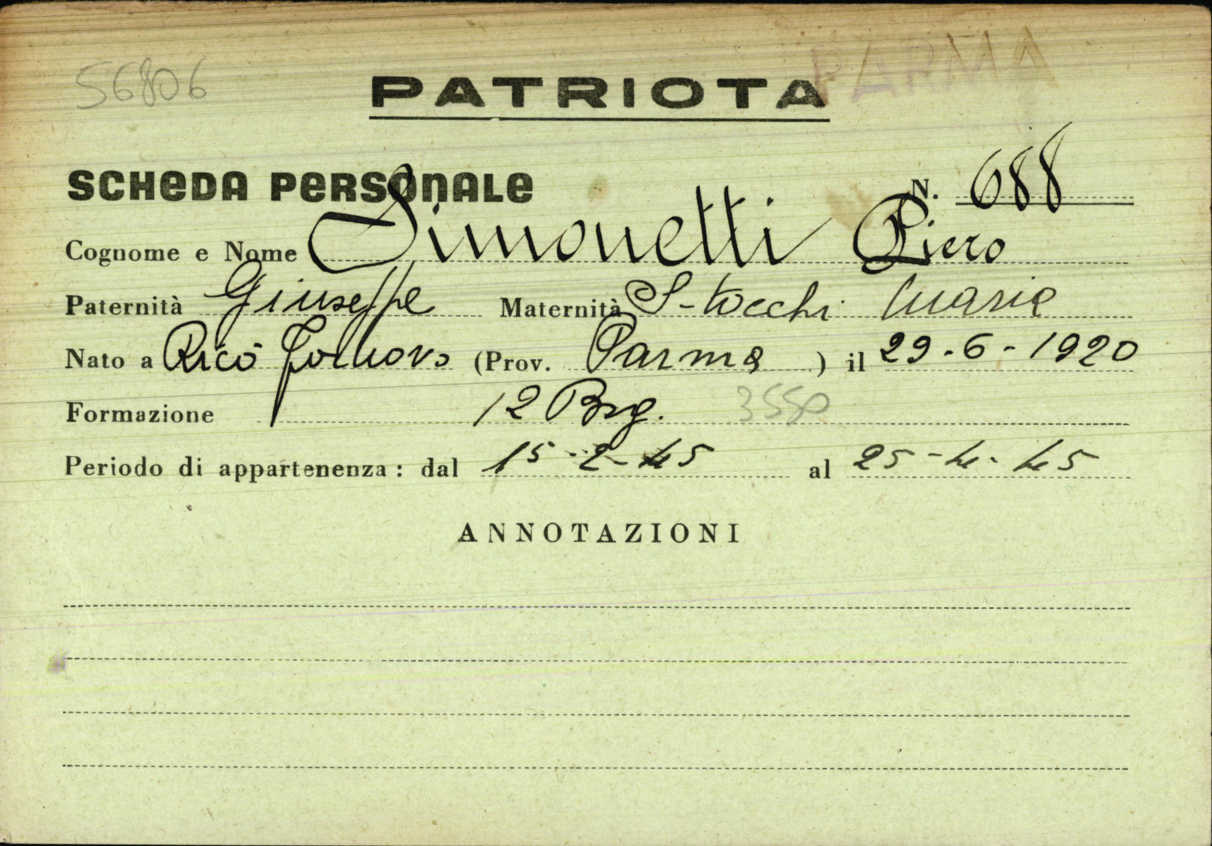 56806
PATRIOTA PARMA
SCHEDA PERSONALE N. 688
Cognome e Nome Simonetti Piero
Paternità Giuseppe Maternità Stocchi Maria
Nato a Ricò Fornovo (Prov. Parma ) il 29-6-1920
Formazione 12 Brg. 3550
Periodo di appartenenza: dal 15-2-45 al 25-4-45
ANNOTAZIONI